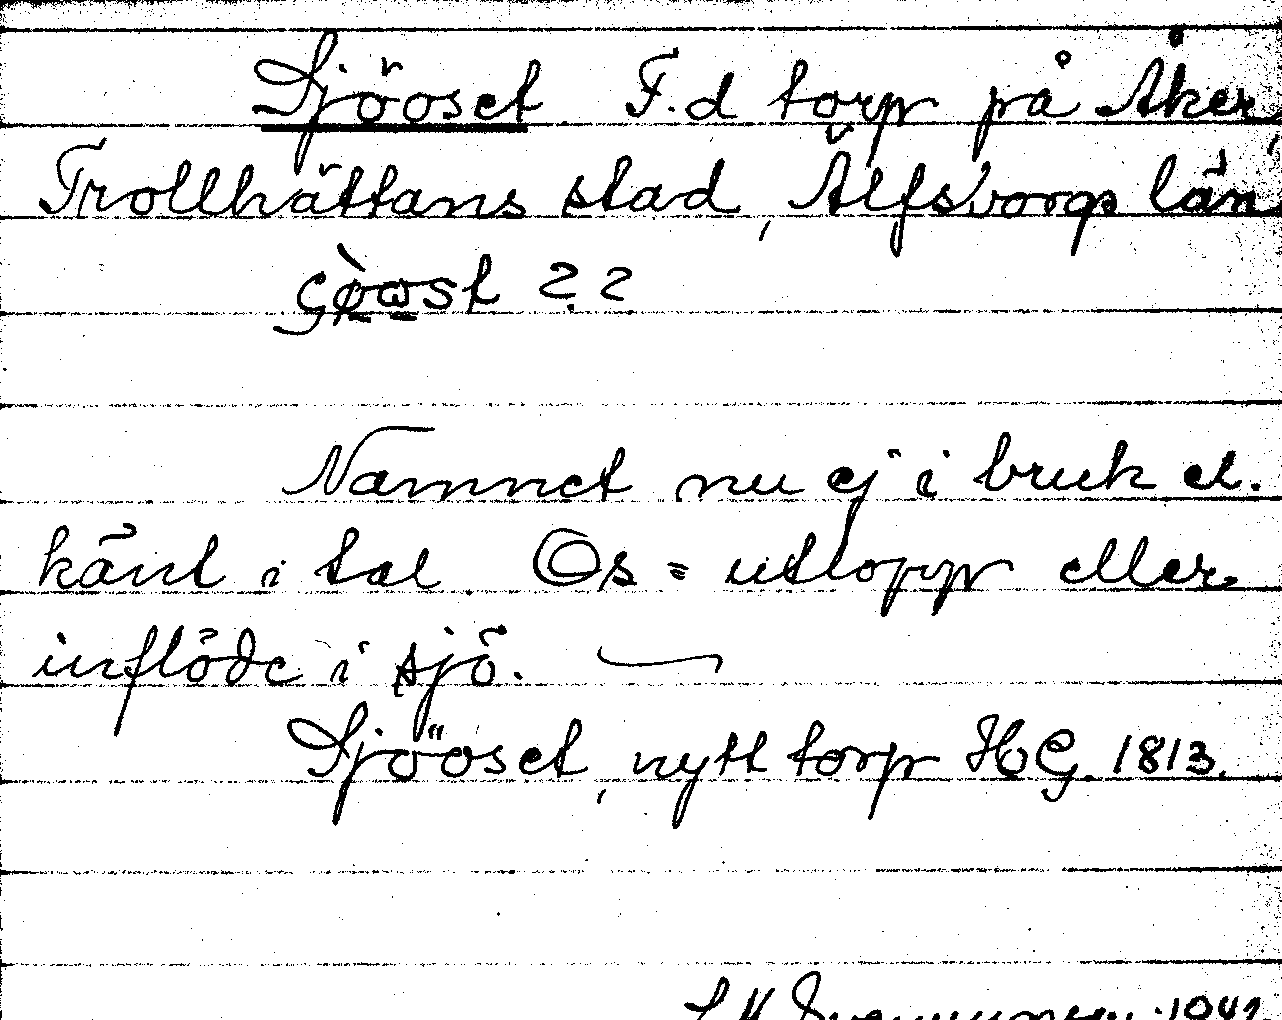 Sjööset F.d torp på Åker,
Trollhättans stad, Älfsborgs län
Namnet nu ej i bruk el.
känt i tal Os = utlopp eller
inflöde i sjö.
Sjööset, nytt torp HG. 1813.